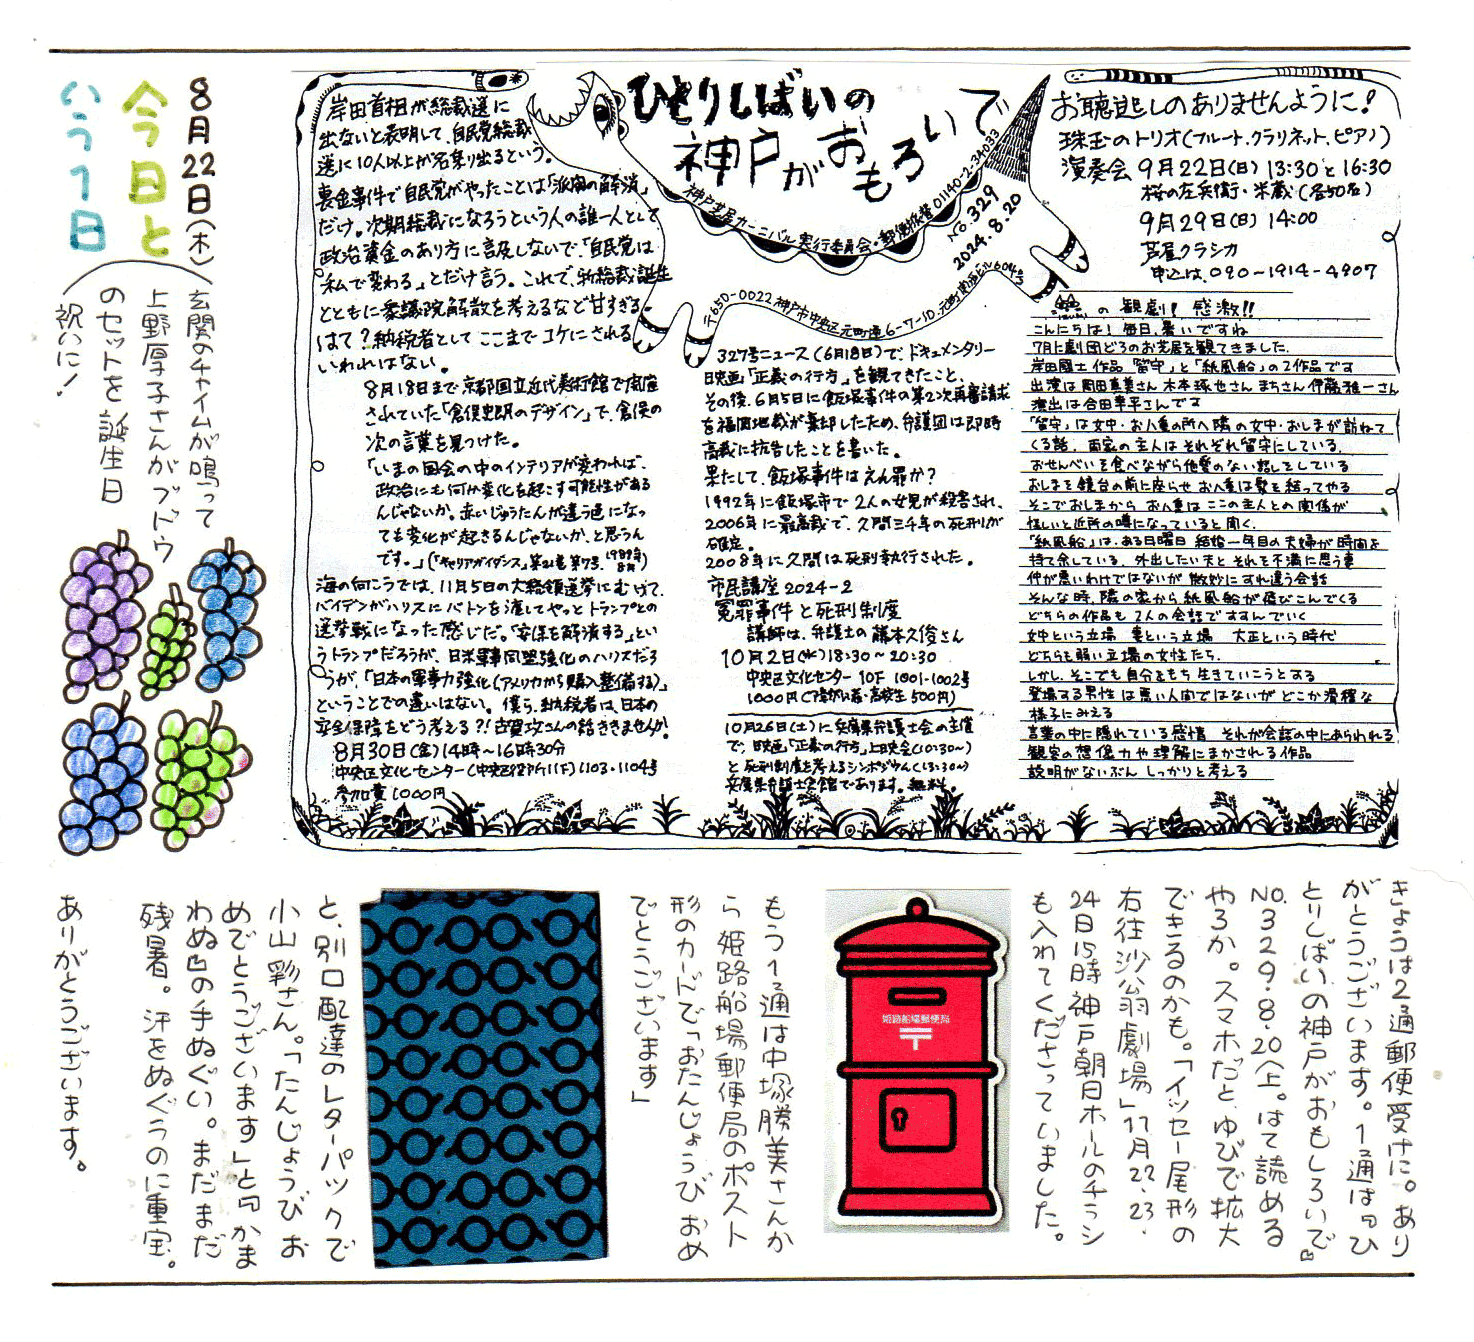 8月22日(木)
今日と
いう1日
玄関のチャイムが鳴って
上野厚子さんがブドウ
のセットを誕生日
祝いに!
ひとりしばいの
神戸がおもろいで
神戸芝居カーニバル実行委員会・郵便振替01140-2-34033
No.329
2024.8.20
〒650-0022 神戸市中央区元町通6-7-10.元町関西ビル604号
岸田首相が総裁選に
出ないと表明して、自民党総裁
選に10人以上が名乗り出るという。
裏金事件で自民党がやったことは「派閥の解消」
だけ。次期総裁になろうという人の誰一人として
政治資金のあり方に言及しないで、「自民党は
私で変わる」とだけ言う。これで、新総裁誕生
とともに衆議院解散を考えるなど甘すぎる。
はて?納税者としてここまでコケにされる
いわれはない。
8月18日まで京都国立近代美術館で開催
されていた「倉俣史朗のデザイン」で、倉俣の
次の言葉を見つけた。
「いまの国会の中のインテリアが変われば、
政治にも何か変化を起こす可能性がある
んじゃないか。赤いじゅうたんが違う色になっ
ても変化が起きるんじゃないか、と思うん
です。」(「キャリアガイダンス」第21巻第7号、1989年8月)
海の向こうでは、11月5日の大統領選挙にむけて、
バイデンがハリスにバトンを渡してやっとトランプとの
選挙戦になった感じだ。「安保を解消する」とい
うトランプだろうが、日米軍事同盟強化のハリスだろ
うが、「日本の軍事力強化(アメリカから購入整備する)」
ということでの違いはない。僕ら、納税者は、日本の
安全保障をどう考える?!古賀攻さんの話ききませんか。
8月30日(金)14時~16時30分
中央区文化センター(中央区役所11F)1103・1104号
参加費1,000円
327号ニュース(6月18日)で、ドキュメンタリー
映画「正義の行方」を観てきたこと、
その後、6月5日に飯塚事件の第2次再審請求
を福岡地裁が棄却したため、弁護団は即時
高裁に抗告したことを書いた。
果たして、飯塚事件はえん罪か?
1992年に飯塚市で2人の女児が殺害され、
2006年に最高裁で、久間三千年の死刑が
確定。
2008年に久間は死刑執行された。
市民講座2024-2
冤罪事件と死刑制度
講師は、弁護士の藤本久俊さん
10月2日(水)18:30~20:30
中央区文化センター10F 1001・1002号
1000円(障がい者・高校生500円)
10月26日(土)に兵庫県弁護士会の主催
で、映画「正義の行方」上映会(10:30~)
と死刑制度を考えるシンポジウム(13:30~)
兵庫県弁護士会館であります。無料。
お聴逃しのありませんように!
珠玉のトリオ(フルート、クラリネット、ピアノ)
演奏会 9月22日(日)13:30と16:30
桜の左兵衛・米蔵(各50名)
9月29日(日)14:00
芦屋クラシカ
申込は、090-1914-4907
の 観劇!! 感激!!
こんにちは! 毎日、暑いですね
7月に劇団どろのお芝居を観てきました.
岸田國士作品「留守」と「紙風船」の2作品です
出演は岡田恵美さん 木本琢也さん まちさん 伊藤雅一さん
演出は合田幸平さんです
「留守」は女中・お八重の所へ隣の女中・おしまが訪ねて
くる話. 両家の主人はそれぞれ留守にしている.
おせんべいを食べながら他愛のない話しをしている
おしまを鏡台の前に座らせ お八重は髪を結ってやる
そこでおしまから お八重はここの主人との関係が
怪しいと近所の噂になっていると聞く.
「紙風船」は、ある日曜日 結婚一年目の夫婦が時間を
持て余している. 外出したい夫とそれを不満に思う妻
仲が悪いわけではないが 微妙にすれ違う会話
そんな時、隣の家から紙風船が飛びこんでくる
どちらの作品も 2人の会話ですすんでいく
女中という立場 妻という立場 大正という時代
どちらも弱い立場の女性たち.
しかし、そこでも自分をもち生きていこうとする
登場する男性は悪い人間ではないがどこか滑稽な
様子にみえる
言葉の中に隠れている感情 それが会話の中にあらわれる
観客の想像力や理解にまかされる作品
説明がないぶん しっかりと考える
きょうは2通郵便受けに。あり
がとうございます。1通は『ひ
とりしばいの神戸がおもしろいで』
NO.329・8.20へ上。はて読める
やろか。スマホだと、ゆびで拡大
できるのかも。「イッセー尾形の
右往沙翁劇場」11月22、23、
24日15時神戸朝日ホールのチラシ
も入れてくださっていました。
姫路船場郵便局
もう1通は中塚勝美さんか
ら姫路船場郵便局のポスト
形のカードで「おたんじょうび おめ
でとうございます」
と、別口配達のレターパックで
小山彩さん。「たんじょうびお
めでとうございます」と『かま
わぬ』の手ぬぐい。まだまだ
残暑。汗をぬぐうのに重宝。
ありがとうございます。